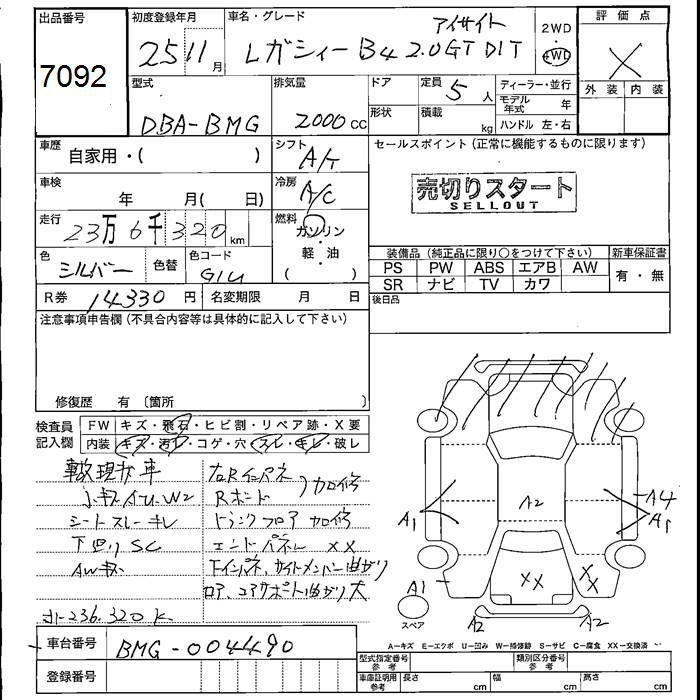 出品番号
7092
初度登録年月
25 11月
車名・グレード
アイサイト
レガシィーB4 2.0GT DIT
2WD
4WD
評価点
X
外装 内装
型式
DBA-BMG
排気量
2000cc
ドア
形状
定員 5人
積載 kg
ディーラー・並行
モデル年式 年
ハンドル 左・右
車歴
自家用・( )
シフト
A/T
セールスポイント(正常に機能するものに限ります)
売切りスタート
SELLOUT
車検
年 月( 日)
冷房
A/C
走行
23万6千320km
燃料
ガソリン・
軽・油
( )
色
シルバー
色替
色コード
G1U
装備品(純正品に限り○をつけて下さい)
新車保証書
PS PW ABS エアB AW
有・無
SR ナビ TV カワ
R券 14330円 名変期限 月 日
後日品
注意事項申告欄(不具合内容等は具体的に記入して下さい)
修復歴 有〔箇所 〕
検査員
記入欄
FW キズ・飛石・ヒビ割・リペア跡・X要
内装 キズ・汚れ・コゲ・穴・スレ・キレ・破レ
車
小キズ W2
シートスレ・キレ
下廻りSC
AWキズ
オー236.320K
右Rインパネ
Rボード
加修
トランクフロア加修
エンドパネルXX
下インパネ、サイドメンバー曲がり
ロア、コアサポート曲がり大
A1
A2
A4
A1
XX
XX
A1
A2
A2
スペア
A−キズ E−エクボ U−凹み W−補修跡 S−サビ C−腐食 XX−交換済
車台番号
BMG-004490
登録番号
型式指定番号
参考
類別区分番号
参考
車庫証明用
参考
長さ cm 幅 cm 高さ cm